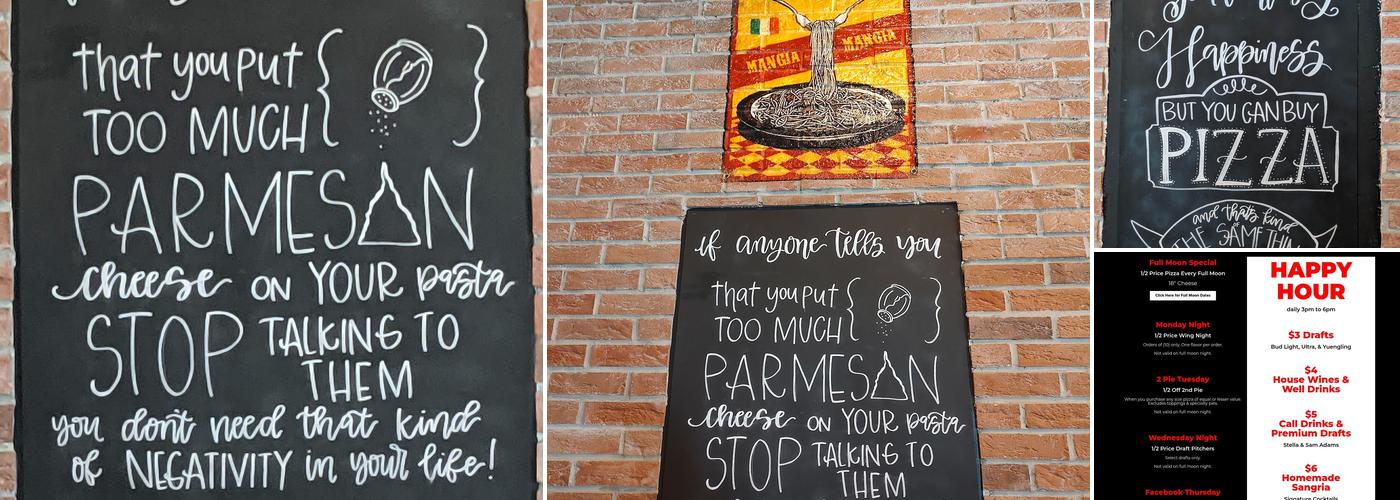 that you put
TOO MUCH
PARMESAN
cheese ON YOUR pasta
STOP TALKING TO
THEM
you don't need that kind
of NEGATIVITY in your life!
MANGIA MANGIA
if anyone tells you
that you put
TOO MUCH
PARMESAN
cheese ON YOUR pasta
STOP TALKING TO
THEM
Happiness
BUT YOU CAN BUY
PIZZA
and that's kind
THE SAME THIN
Full Moon Special
1/2 Price Pizza Every Full Moon
18" Cheese
Click Here for Full Moon Dates
Monday Night
1/2 Price Wing Night
Orders of (10) only. One flavor per order.
Not valid on full moon night.
2 Pie Tuesday
1/2 Off 2nd Pie
When you purchase any size pizza of equal or lesser value.
Excludes toppings & specialty pies.
Not valid on full moon night.
Wednesday Night
1/2 Price Draft Pitchers
Select drafts only.
Not valid on full moon night.
Facebook Thursday
HAPPY
HOUR
daily 3pm to 6pm
$3 Drafts
Bud Light, Ultra, & Yuengling
$4
House Wines &
Well Drinks
$5
Call Drinks &
Premium Drafts
Stella & Sam Adams
$6
Homemade
Sangria
Signature Cocktails